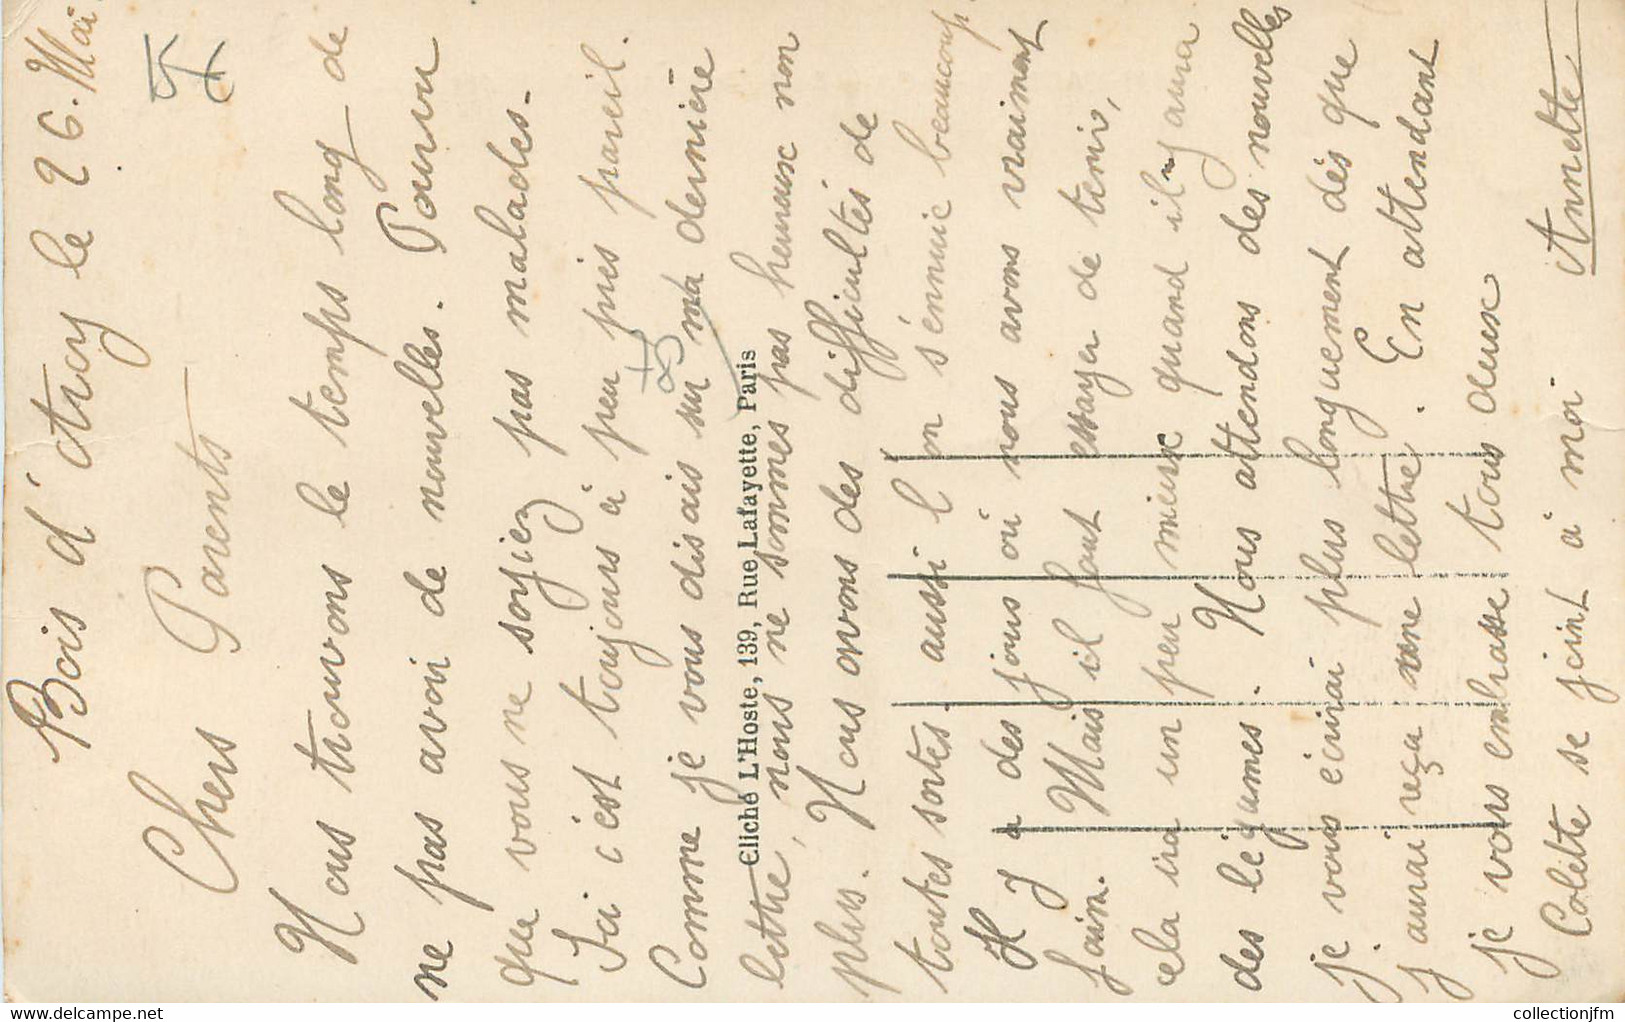 Bois d'Arcy le 26. Mai.
Chers Parents
Nous trouvons le temps long de
ne pas avoir de nouvelles. Pourvu
que vous ne soyiez pas malades.
Ici c'est toujours à peu près pareil.
Comme je vous disais sur ma dernière
lettre, nous ne sommes pas heureux non
plus. Nous avons des difficultés de
toutes sortes. aussi l'on s'ennuie beaucoup
Il y a des jours où nous avons vraiment
faim. Mais il faut essayer de tenir,
cela ira un peu mieux quand il y aura
des légumes. Nous attendons des nouvelles
je vous écrirai plus longuement dès que
j'aurai reçu une lettre. En attendant
je vous embrasse tous deux
Colette se joint à moi Annette
Cliché L'Hoste, 139, Rue Lafayette, Paris
delcampe.net
collectionjfm